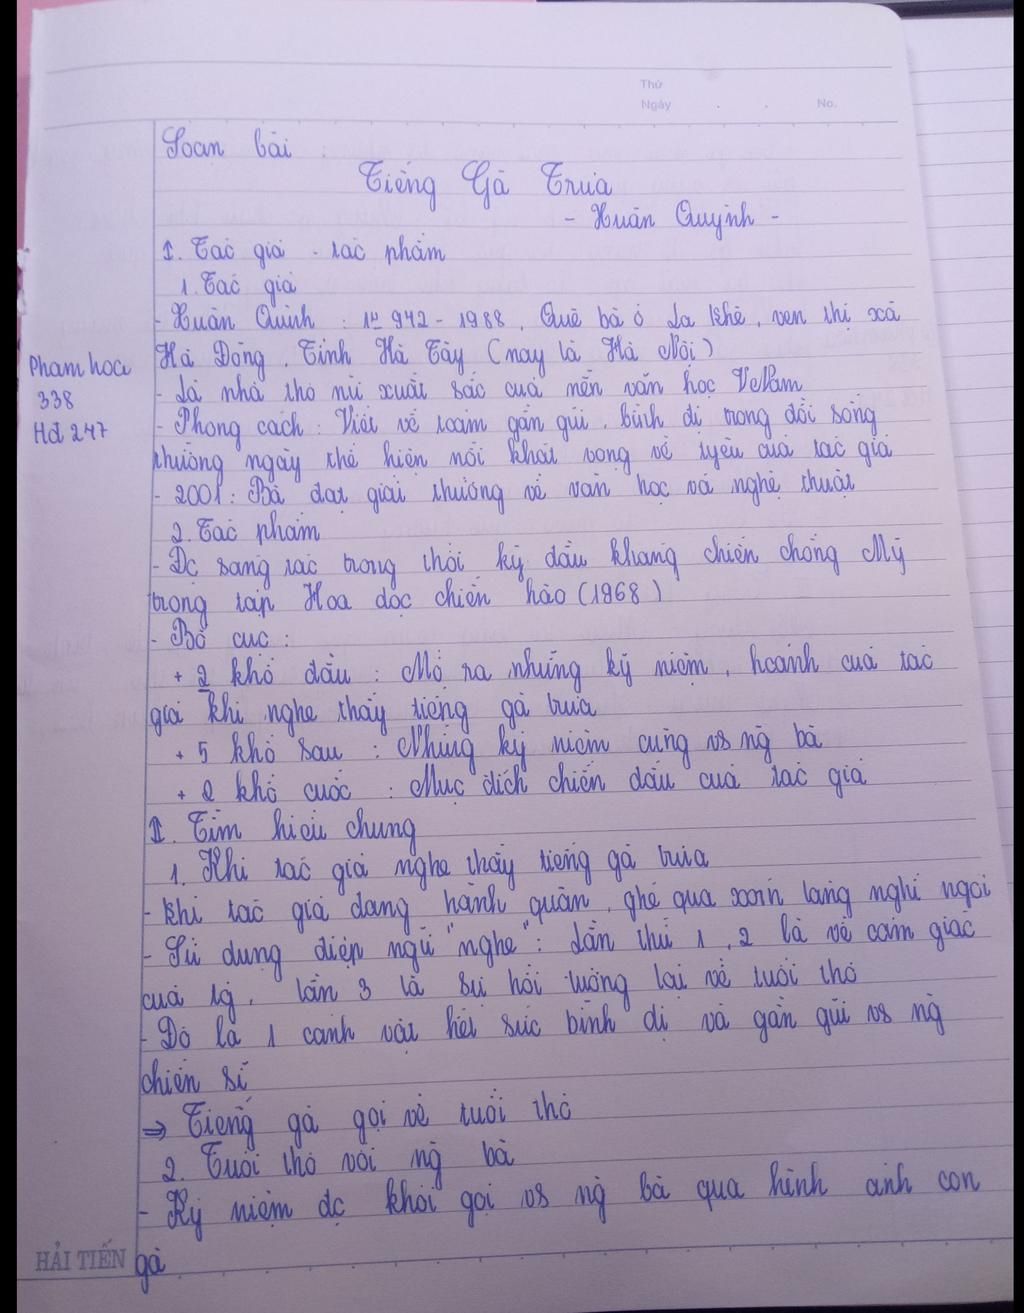 Thứ
Ngày . . No.
Soạn bài
Tiếng Gà Trưa
- Xuân Quỳnh -
I. Tác giả - tác phẩm
1. Tác giả
- Xuân Quỳnh : 1942 - 1988. Quê bà ở La Khê, ven thị xã
Hà Đông. Tỉnh Hà Tây (nay là Hà Nội)
- Là nhà thơ nữ xuất sắc của nền văn học VeNam
- Phong cách : Viết về gần gũi, bình dị trong đời sống
thường ngày thể hiện nỗi khát vọng về tyêu của tác giả
- 2001 : Bà đạt giải thưởng về văn học và nghệ thuật
2. Tác phẩm
- Đc sáng tác trong thời kỳ đầu kháng chiến chống Mỹ
trong tập Hoa dọc chiến hào (1968)
- Bố cục :
+ 2 khổ đầu : Mở ra những kỷ niệm, hcảnh của tác
giả khi nghe thấy tiếng gà trưa
+ 5 khổ sau : Những kỷ niệm cùng vs ng bà
+ 2 khổ cuốc : Mục đích chiến đấu của tác giả
II. Tìm hiểu chung
1. Khi tác giả nghe thấy tiếng gà trưa
- Khi tác giả đang hành quân, ghé qua xóm làng nghỉ ngơi
- Sử dụng điệp ngữ "nghe" : Lần thứ 1, 2 là về cảm giác
của tg, lần 3 là sự hồi tưởng lại về tuổi thơ
- Đó là 1 cảnh vật hết sức bình dị và gần gũi vs ng
chiến sĩ
=> Tiếng gà gọi về tuổi thơ
2. Tuổi thơ với ng bà
- Kỷ niệm đc khơi gọi vs ng bà qua hình ảnh con
gà
Pham hoa
338
Hđ 247
HẢI TIẾN